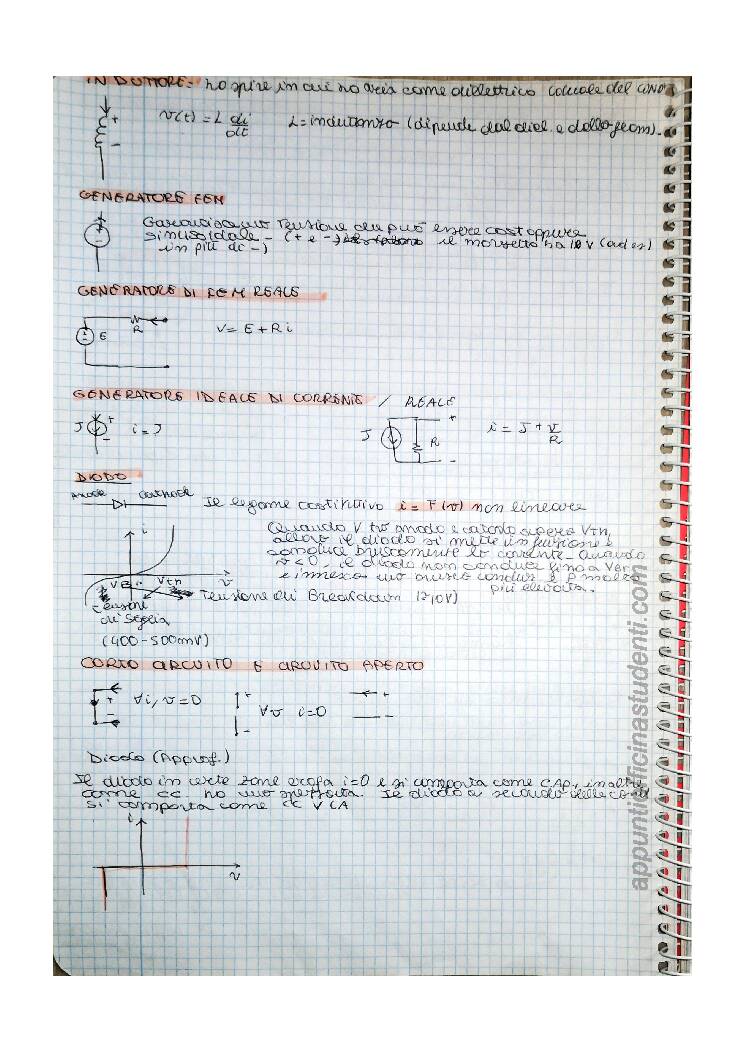 INDUTTORE - ho spire in cui ho aria come dielettrico
+ v(t) = L di/dt L = induttanza (dipende dal diel. e dalla geom).
-
GENERATORE FEM
+ Garantisce una tensione che può essere cost oppure
sinusoidale - (+ e - il morsetto ha 10 V (ad es)
- in più di -)
GENERATORE DI FEM REALE
R
E V = E + R i
GENERATORE IDEALE DI CORRENTE / REALE
J + - i = J J R + - i = J + V/R
DIODO
Anode Cathode Il legame costitutivo i = F(v) non lineare
i Quando V tra anodo e catodo supera Vth,
allora il diodo si mette in funzione e
conduce bruscamente la corrente - Quando
v<0, il diodo non conduce fino a VBr
VBr Vth v
più elevata.
Tensione Tensione di Breakdown
di soglia
(400-500mV)
CORTO CIRCUITO E CIRCUITO APERTO
+ - ∀i, v=0 + - ∀v i=0 + -
Diodo (Approx.)
Il diodo in certe zone eroga i=0 e si comporta come CAP, inoltre
come cc. ho una Il diodo a seconda delle
si comporta come cc V CA
i
v
appuntiofficinastudenti.com